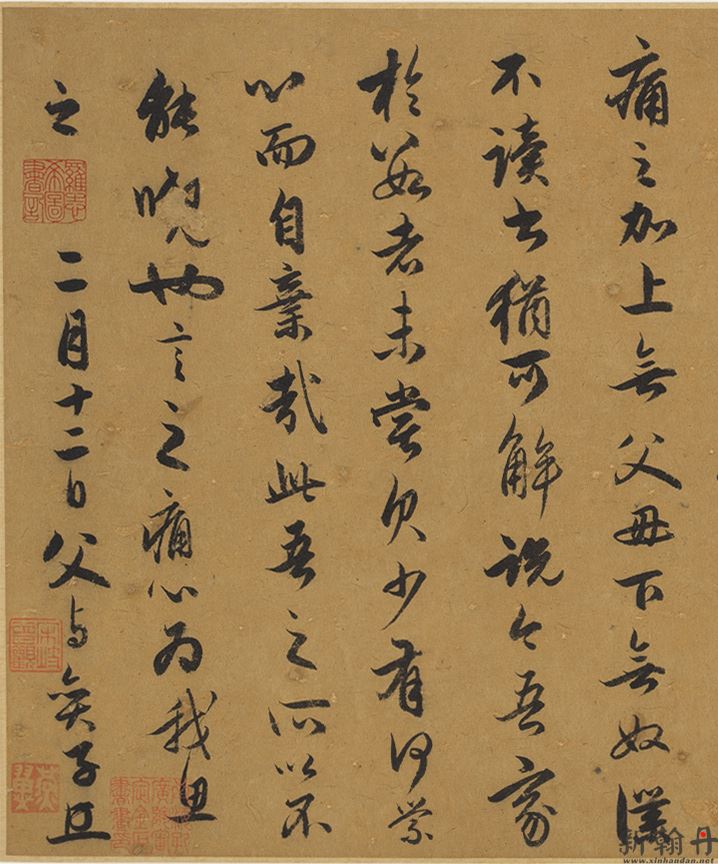 痛之加上無父母下無奴僕
不讀書猶可解說今吾家
於數者未嘗欠少有何縈
心而自棄哉此吾之所以不
能曉也言之痛心為我思
之
二月十二日父与奕子
新翰丹
www.xinhandan.net